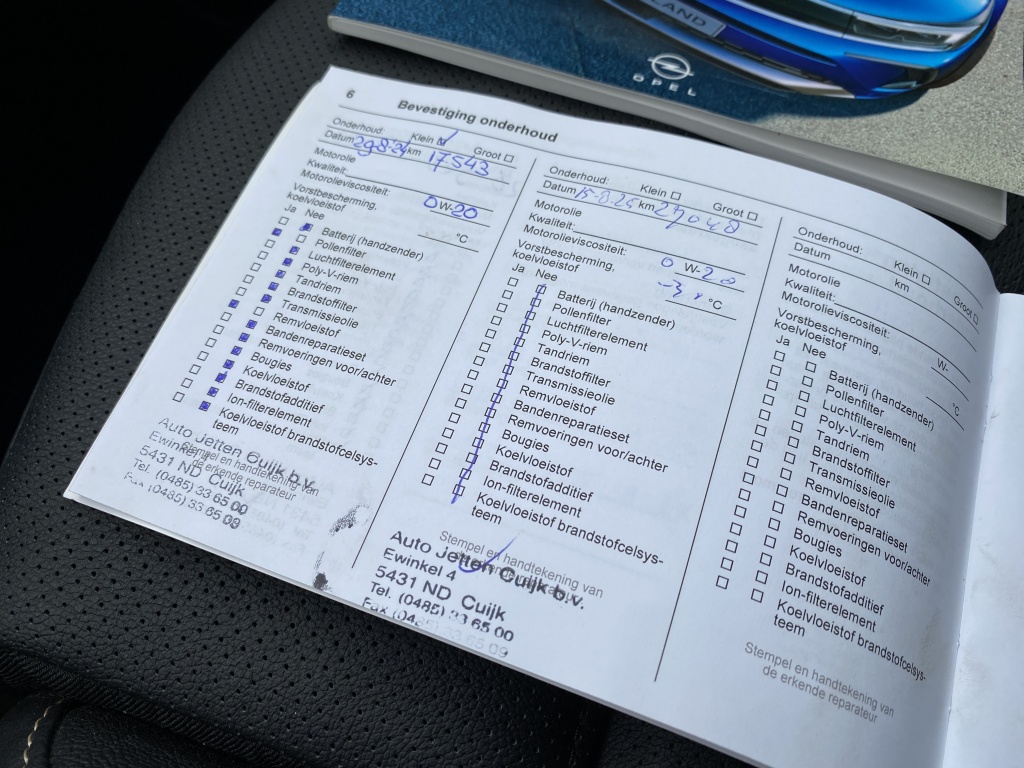 LAND
OPEL
6
Bevestiging onderhoud
Onderhoud: Klein ☑ Groot ☐
Datum 29 8-24 km 17543
Motorolie
Kwaliteit:
Motorolieviscositeit: 0 W-20
Vorstbescherming,
koelvloeistof °C
Ja Nee
Batterij (handzender)
Pollenfilter
Luchtfilterelement
Poly-V-riem
Tandriem
Brandstoffilter
Transmissieolie
Remvloeistof
Bandenreparatieset
Remvoeringen voor/achter
Bougies
Koelvloeistof
Brandstofadditief
Ion-filterelement
Koelvloeistof brandstofcelsys-
teem
Stempel en handtekening van
de erkende reparateur
Auto Jetten Cuijk b.v.
Ewinkel
5431 ND Cuijk
Tel. (0485) 33 65 00
Fax (0485) 33 65 09
Onderhoud: Klein ☐ Groot ☐
Datum 15-8.25 km 27048
Motorolie
Kwaliteit:
Motorolieviscositeit: 0 W-20
Vorstbescherming,
koelvloeistof °C
Ja Nee
Batterij (handzender)
Pollenfilter
Luchtfilterelement
Poly-V-riem
Tandriem
Brandstoffilter
Transmissieolie
Remvloeistof
Bandenreparatieset
Remvoeringen voor/achter
Bougies
Koelvloeistof
Brandstofadditief
Ion-filterelement
Koelvloeistof brandstofcelsys-
teem
Stempel en handtekening van
Auto Jetten Cuijk b.v.
Ewinkel 4
5431 ND Cuijk
Tel. (0485) 33 65 00
Fax (0485) 33 65 09
Onderhoud: Klein ☐ Groot ☐
Datum km
Motorolie
Kwaliteit:
Motorolieviscositeit: W-
Vorstbescherming,
koelvloeistof °C
Ja Nee
Batterij (handzender)
Pollenfilter
Luchtfilterelement
Poly-V-riem
Tandriem
Brandstoffilter
Transmissieolie
Remvloeistof
Bandenreparatieset
Remvoeringen voor/achter
Bougies
Koelvloeistof
Brandstofadditief
Ion-filterelement
Koelvloeistof brandstofcelsys-
teem
Stempel en handtekening van
de erkende reparateur